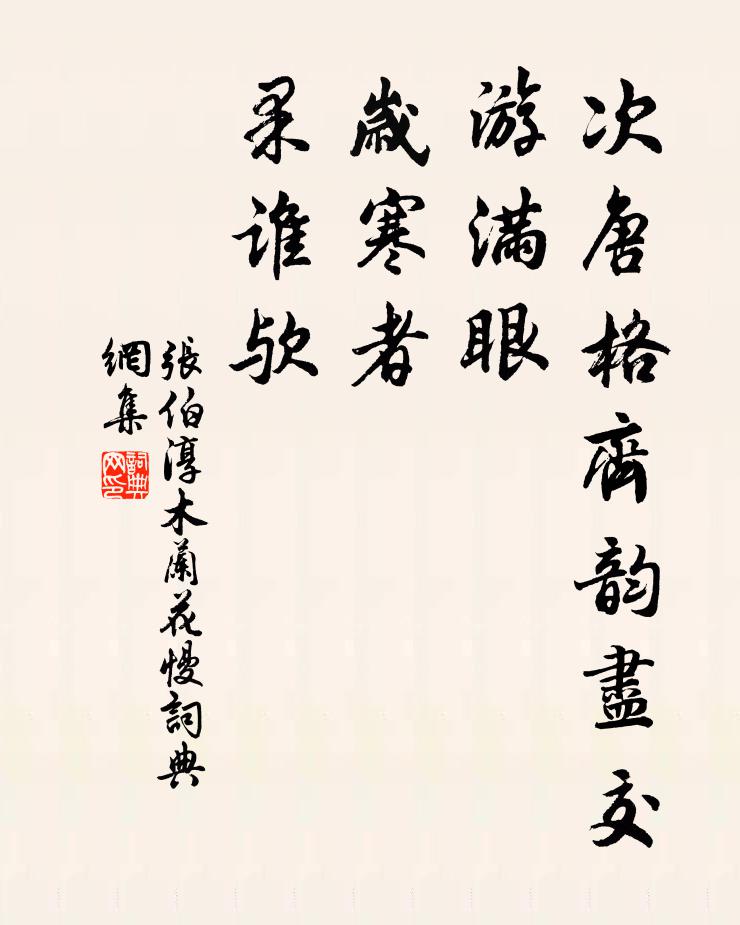 次唐格齊韵盡交
游滿眼
歲寒者
果誰歟
張伯淳木蘭花慢詞典
網集
詞典
网印